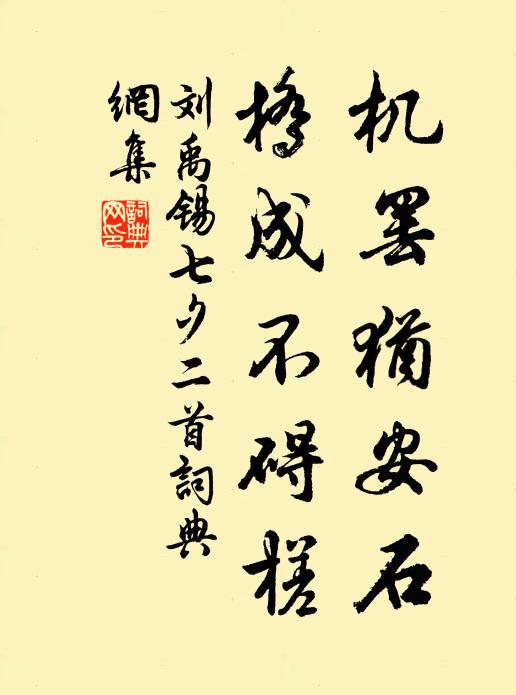 机罢犹安石
橋成不碍槎
刘禹锡七夕二首詞典
網集
詞典
网印